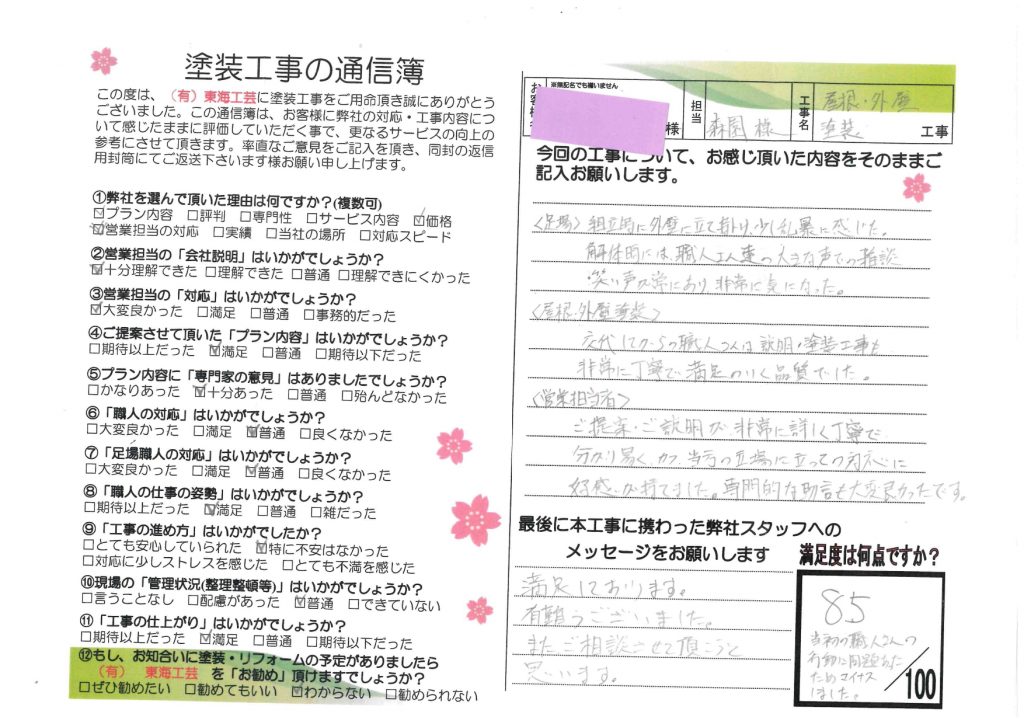 塗装工事の通信簿
この度は、(有)東海工芸に塗装工事をご用命頂き誠にありがとう
ございました。この通信簿は、お客様に弊社の対応・工事内容につ
いて感じたままに評価していただく事で、更なるサービスの向上の
参考にさせて頂きます。率直なご意見をご記入を頂き、同封の返信
用封筒にてご返送下さいます様お願い申し上げます。
①弊社を選んで頂いた理由は何ですか?(複数可)
☑プラン内容 □評判 □専門性 □サービス内容 ☑価格
☑営業担当の対応 □実績 □当社の場所 □対応スピード
②営業担当の「会社説明」はいかがでしょうか?
☑十分理解できた □理解できた □普通 □理解できにくかった
③営業担当の「対応」はいかがでしょうか?
☑大変良かった □満足 □普通 □事務的だった
④ご提案させて頂いた「プラン内容」はいかがでしょうか?
□期待以上だった ☑満足 □普通 □期待以下だった
⑤プラン内容に「専門家の意見」はありましたでしょうか?
□かなりあった ☑十分あった □普通 □殆んどなかった
⑥「職人の対応」はいかがでしょうか?
□大変良かった □満足 ☑普通 □良くなかった
⑦「足場職人の対応」はいかがでしょうか?
□大変良かった □満足 ☑普通 □良くなかった
⑧「職人の仕事の姿勢」はいかがでしょうか?
□期待以上だった ☑満足 □普通 □雑だった
⑨「工事の進め方」はいかがでしたか?
□とても安心していられた ☑特に不安はなかった
□対応に少しストレスを感じた □とても不満を感じた
⑩現場の「管理状況(整理整頓等)」はいかがでしょうか?
□言うことなし □配慮があった ☑普通 □できていない
⑪「工事の仕上がり」はいかがでしょうか?
□期待以上だった ☑満足 □普通 □期待以下だった
⑫もし、お知合いに塗装・リフォームの予定がありましたら
(有) 東海工芸 を「お勧め」頂けますでしょうか?
□ぜひ勧めたい □勧めてもいい ☑わからない □勧められない
※無記名でも構いません
お客様 様 担当 森園 様 工事名 屋根・外壁
塗装 工事
今回の工事について、お感じ頂いた内容をそのままご
記入お願いします。
〈足場〉組立時に外壁に立て掛け、少し乱暴に感じた。
解体時には、職人さん達の大きな声での雑談
笑い声が常にあり、非常に気になった。
〈屋根・外壁塗装〉
交代してからの職人さんは説明・塗装工事も
非常に丁寧で満足のいく品質でした。
〈営業担当者〉
ご提案・ご説明が非常に詳しく丁寧で
分かり易く、かつ、当方の立場に立っての対応に
好感が持てました。専門的な助言も大変良かったです。
最後に本工事に携わった弊社スタッフへの
メッセージをお願いします
満足しております。
有難うございました。
またご相談させて頂こうと
思います。
満足度は何点ですか?
85
当初の職人さんの
行動に問題有た
ためマイナス
しました。
/100